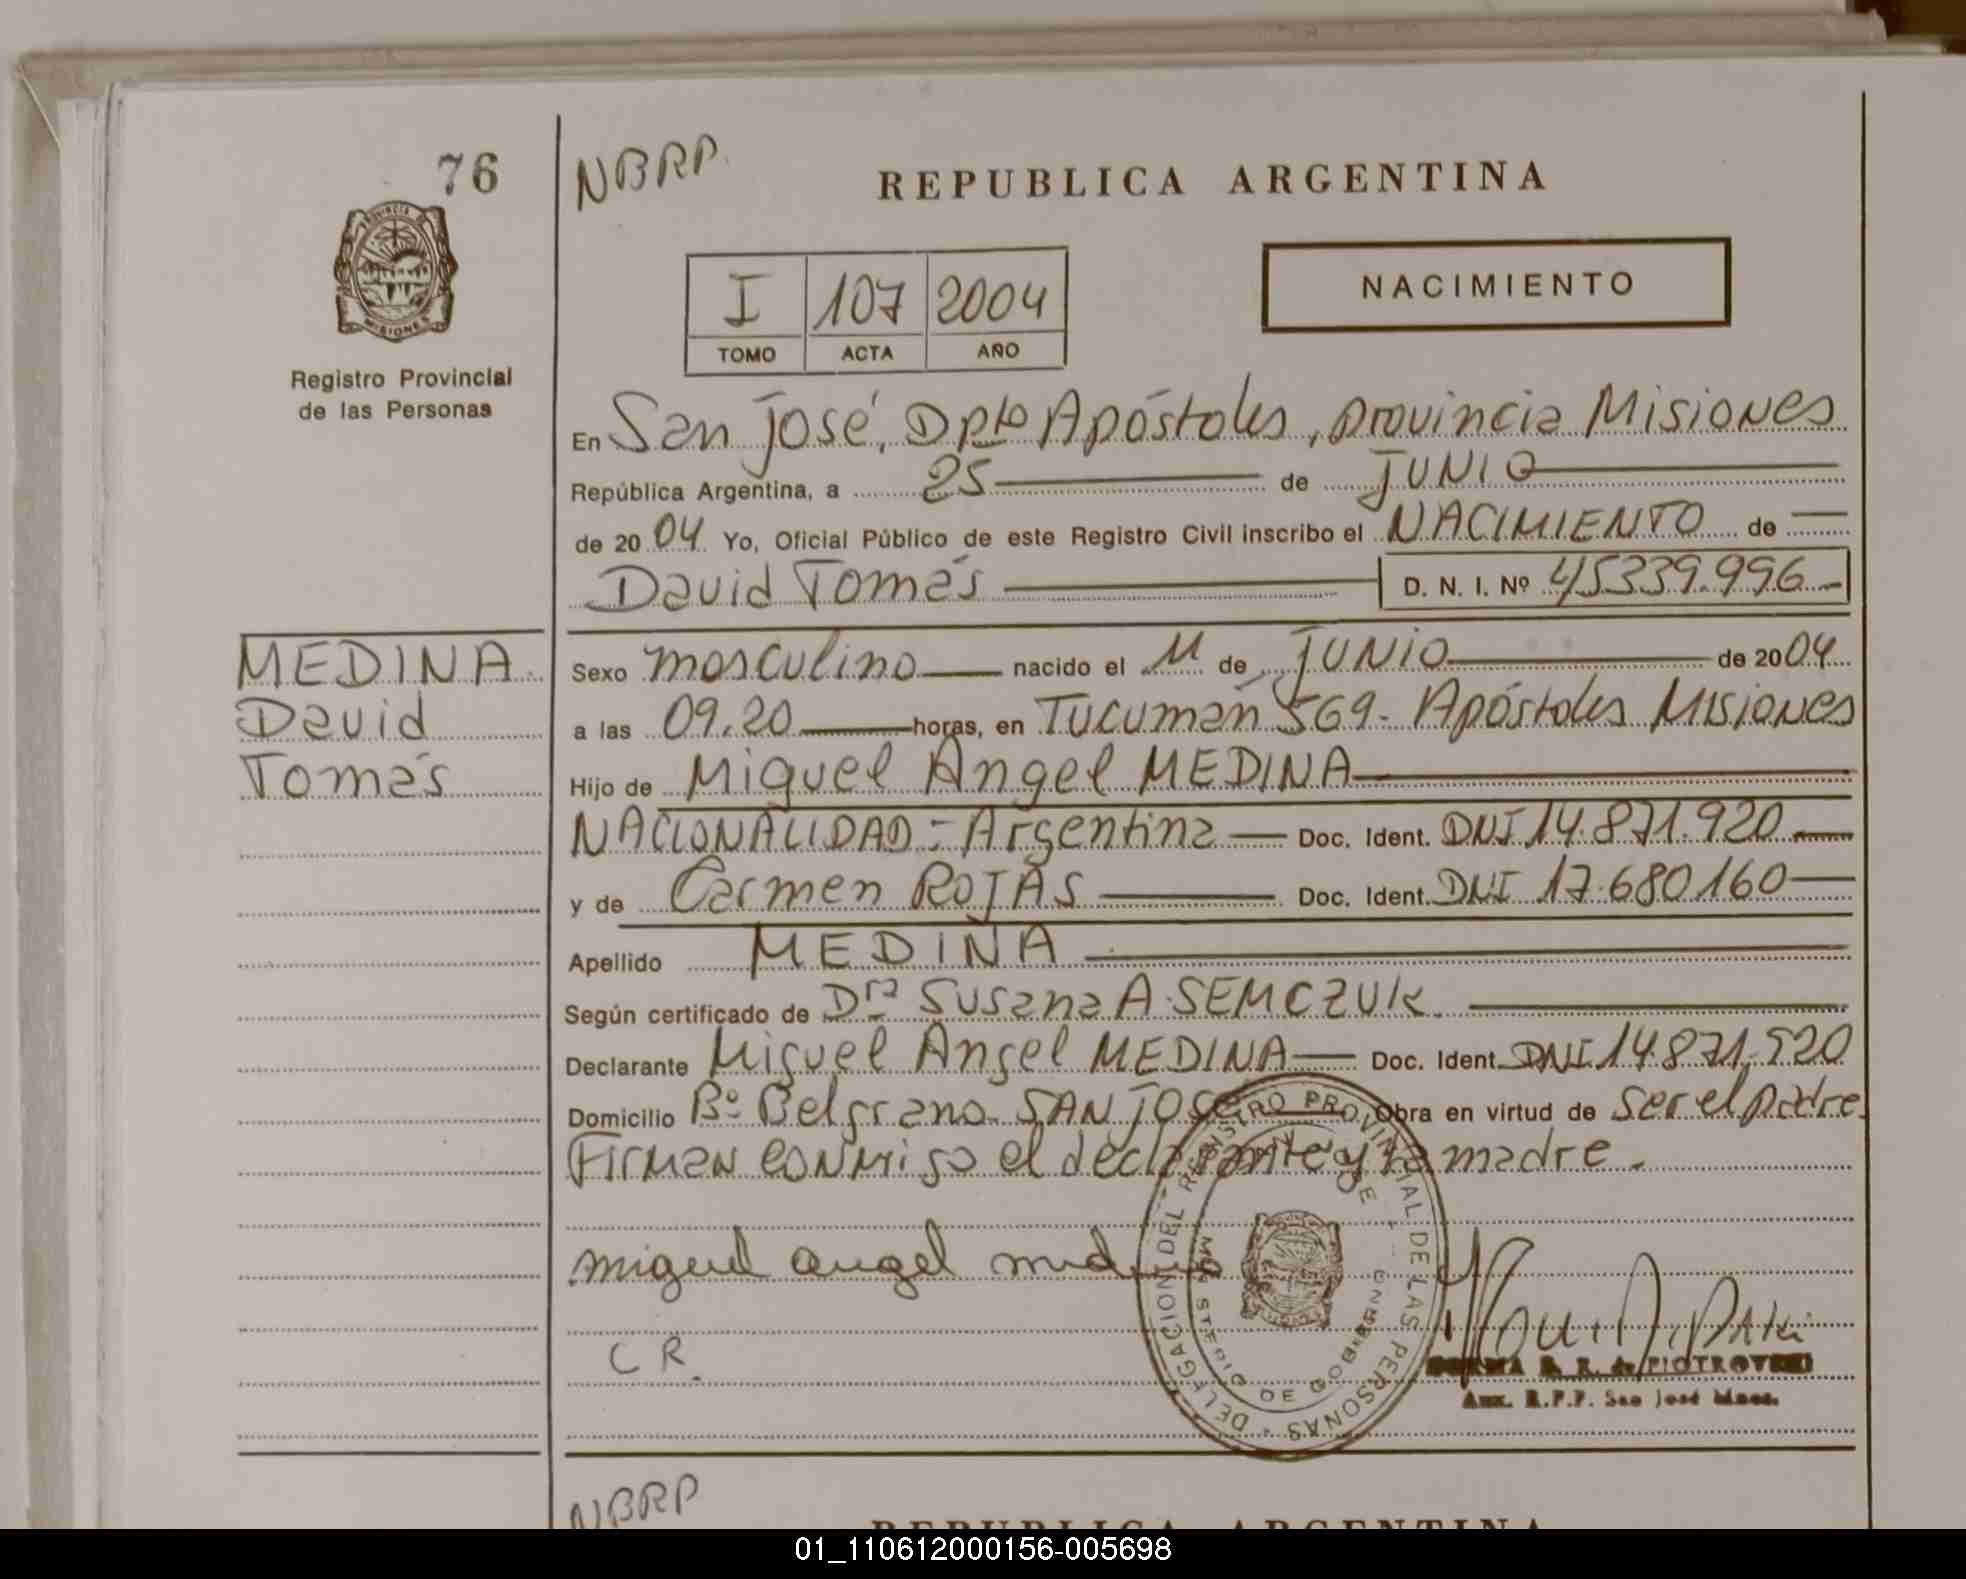 76
NBRP
REPUBLICA ARGENTINA
PROVINCIA DE
MISIONES
Registro Provincial
de las Personas
I 107 2004
TOMO ACTA AÑO
NACIMIENTO
En San José, Dpto Apóstoles, provincia Misiones
República Argentina, a 25 de JUNIO
de 2004 Yo, Oficial Público de este Registro Civil inscribo el NACIMIENTO de
David Tomás D. N. I. Nº 45339.996
MEDINA
David
Tomás
Sexo masculino nacido el 11 de JUNIO de 2004
a las 09.20 horas, en Tucumán 569- Apóstoles Misiones
Hijo de Miguel Angel MEDINA
NACIONALIDAD = Argentina Doc. Ident. DNI 14.871.920
y de Carmen ROJAS Doc. Ident. DNI 17.680160
Apellido MEDINA
Según certificado de Dra Susana A. SEMCZUK.
Declarante Miguel Angel MEDINA Doc. Ident. DNI 14.871.920
Domicilio Bº Belgrano- SAN José Obra en virtud de ser el padre.
Firman conmigo el declarante y la madre.
miguel angel medina
C R.
DELEGACION DEL REGISTRO PROVINCIAL DE LAS PERSONAS
MINISTERIO DE GOBIERNO
NORMA B. R. de PIOTROVSKI
Aux. R.P.P. San José Mnes.
NBRP
REPUBLICA ARGENTINA
01_110612000156-005698